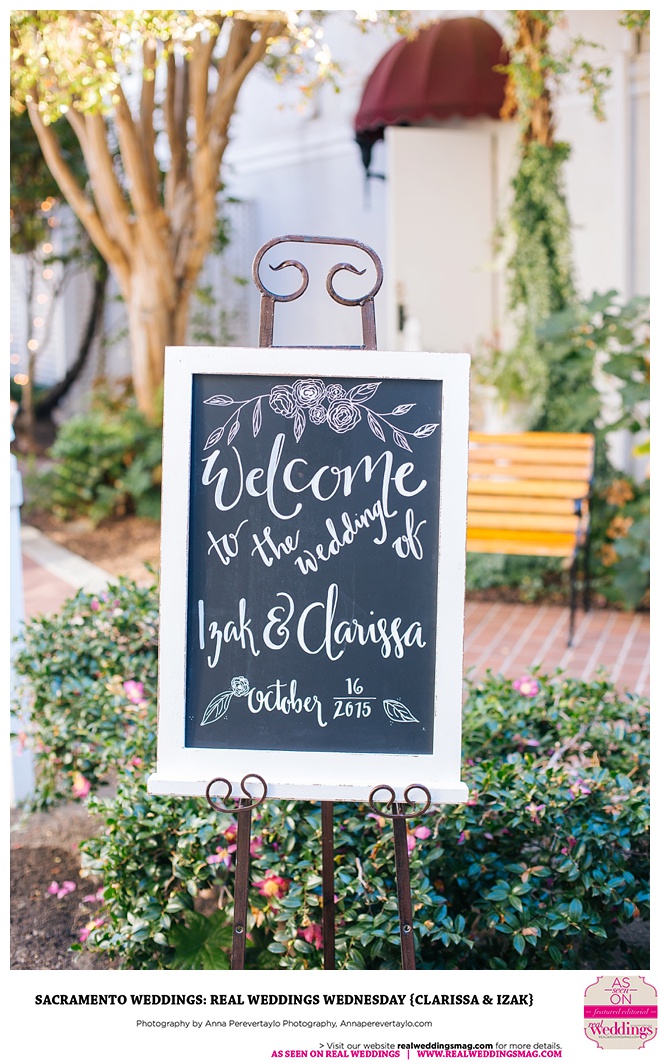 Welcome
to the wedding of
Izak & Clarissa
October 16
2015
SACRAMENTO WEDDINGS: REAL WEDDINGS WEDNESDAY {CLARISSA & IZAK}
Photography by Anna Perevertaylo Photography, Annaperevertaylo.com
> Visit our website realweddingsmag.com for more details.
AS SEEN ON REAL WEDDINGS | WWW.REALWEDDINGSMAG.COM
AS
seen
ON
featured editorial
real
weddings